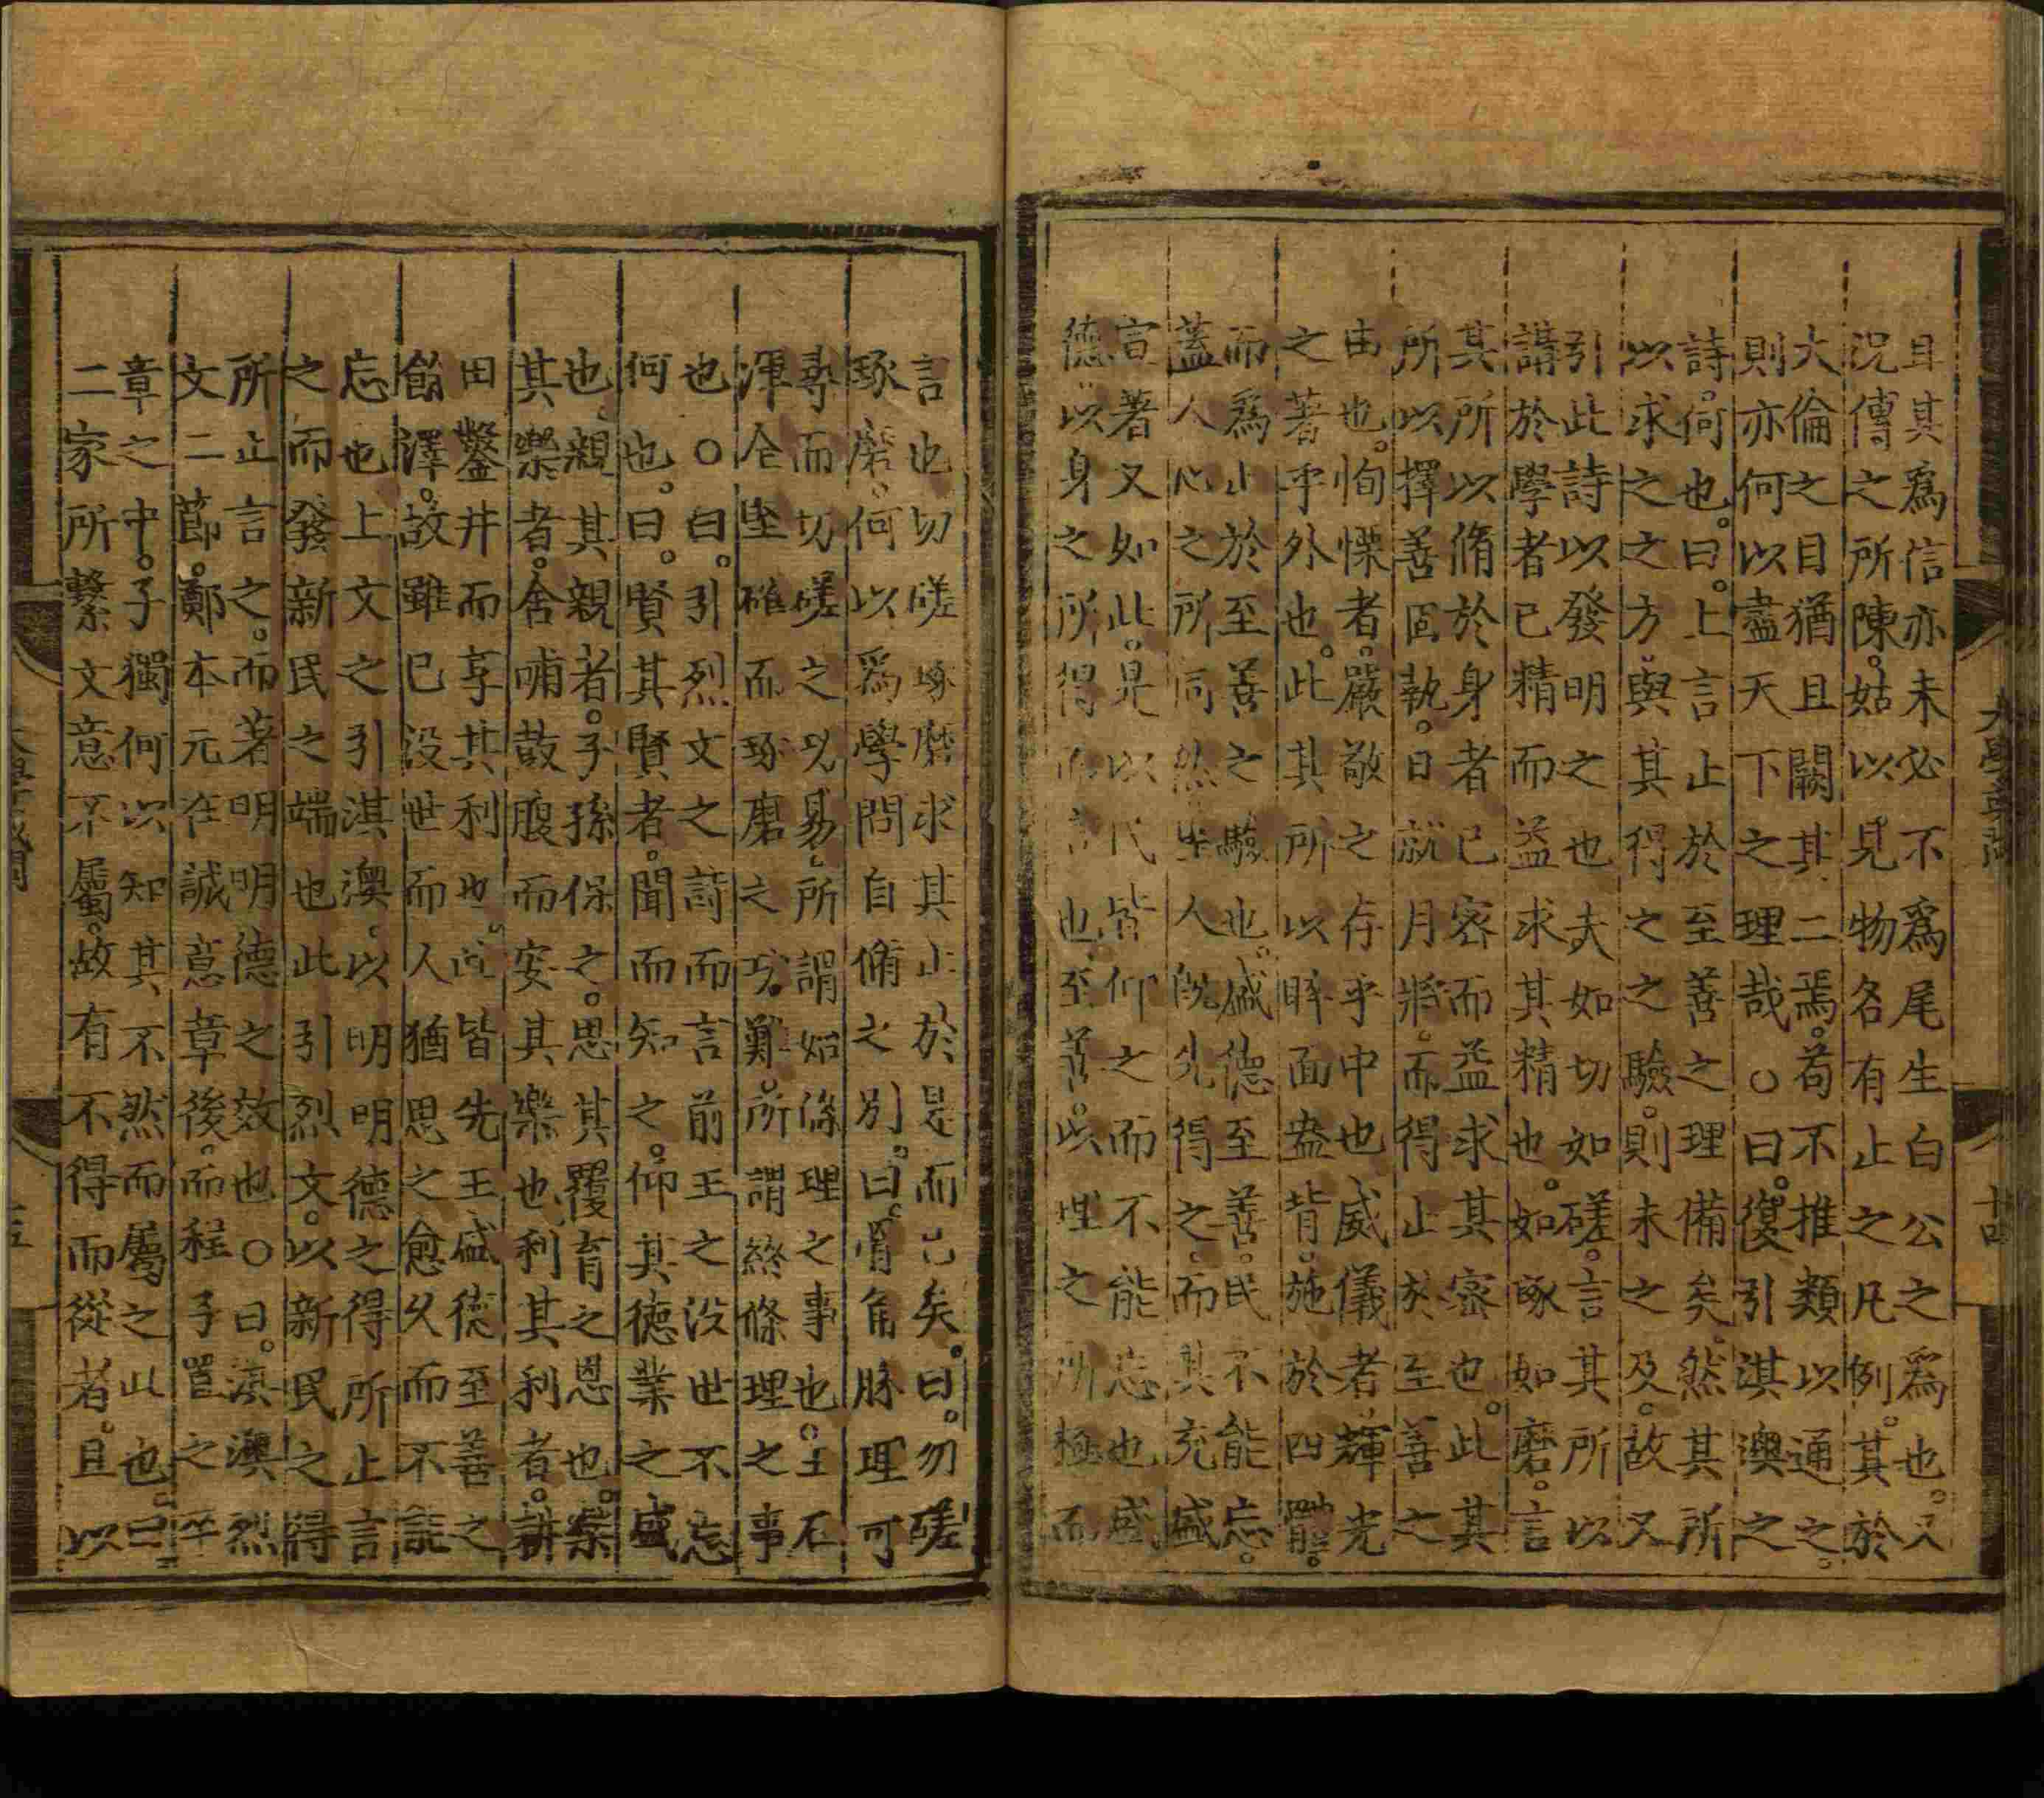 且其爲信亦未必不爲尾生白公之爲也。又
況傳之所陳。姑以見物各有止之凡例。其於
大倫之目猶且闕其二焉。苟不推類以通之。
則亦何以盡天下之理哉。○曰。復引淇澳之
詩。何也。曰。上言止於至善之理備矣。然其所
以求之之方。與其得之之驗。則未之及。故又
引此詩以發明之也夫如切如磋。言其所以
講於學者已精而益求其精也。如琢如磨。言
其所以脩於身者已密而益求其密也。此其
所以擇善固執。日就月將。而得止於至善之
由也。恂慄者。嚴敬之存乎中也威儀者。輝光
之著乎外也。此其所以睟面盎背。施於四體。
而爲止於至善之驗也。盛德至善。民不能忘。
蓋人心之所同然聖人既先得之。而其充盛
宣著又如此。是以民皆仰之而不能忘也盛
德。以身之所得而言也。至善。以理之所極而
言也切磋琢磨求其止於是而已矣。曰。切磋
琢磨。何以爲學問自脩之別。曰。骨角脉理可
尋而切磋之功易。所謂始條理之事也。玉石
渾全堅確而琢磨之功難。所謂終條理之事
也。○曰。引烈文之詩而言前王之沒世不忘
何也。曰。賢其賢者。聞而知之。仰其德業之盛
也。親其親者。子孫保之。思其覆育之恩也。樂
其樂者。含哺鼓腹而安其樂也利其利者。耕
田鑿井而享其利也。此皆先王盛德至善之
餘澤。故雖已沒世而人猶思之愈久而不能
忘也上文之引淇澳。以明明德之得所止言
之而發新民之端也此引烈文。以新民之得
所止言之。而著明明德之效也○曰。淇澳烈
文二節。鄭本元在誠意章後。而程子置之卒
章之中。子獨何以知其不然而屬之此也。曰
二家所繫文意不屬。故有不得而從者。且以
大學或問
十四
大學或問
十五